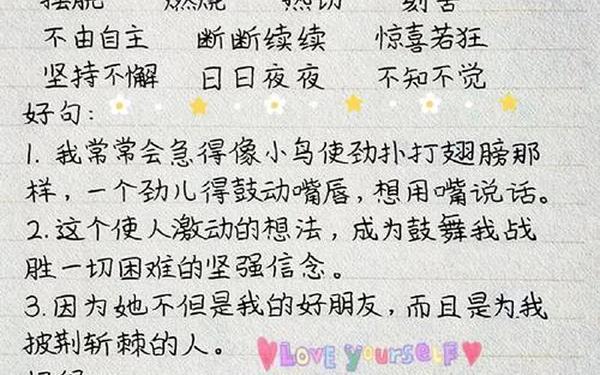 摆脱 燃烧 热切 刻苦
不由自主 断断续续 惊喜若狂
坚持不懈 日日夜夜 不知不觉
好句：
1. 我常常会急得像小鸟使劲扑打翅膀那
样，一个劲儿得鼓动嘴唇，想用嘴说话。
2.这个使人激动的想法，成为鼓舞我战
胜一切困难的坚强信念。
3.因为她不但是我的好朋友，而且是为我
披荆斩棘的人。
LOVE YOURSELF